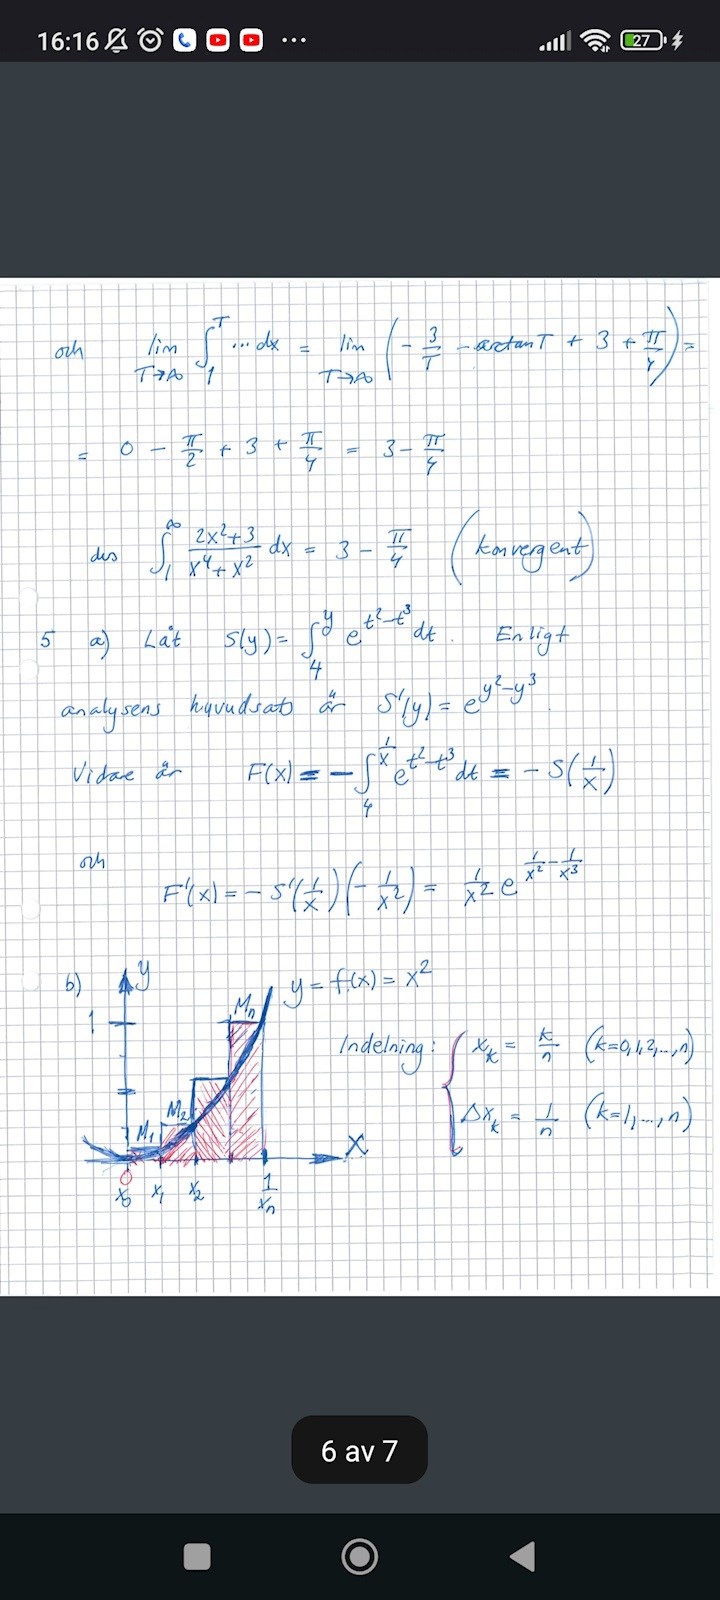 16:16 27
och lim T→∞ ∫₁ᵀ ... dx = lim T→∞ (- 3/T - arctan T + 3 + π/4) =
= 0 - π/2 + 3 + π/4 = 3 - π/4
dvs ∫₁^∞ (2x²+3)/(x⁴+x²) dx = 3 - π/4 (konvergent)
5 a) Låt S(y) = ∫₄^y e^(t²-t³) dt. Enligt
analysens huvudsats är S'(y) = e^(y²-y³).
Vidare är F(x) = - ∫₄^(1/x) e^(t²-t³) dt = - S(1/x)
och
F'(x) = - S'(1/x)(- 1/x²) = 1/x² e^(1/x² - 1/x³)
b) y y = f(x) = x²
1 Mn
Indelning: { xₖ = k/n (k=0,1,2,...,n)
M₂
Δxₖ = 1/n (k=1,...,n)
M₁
x
0 1
x₀ x₁ x₂ xₙ
6 av 7